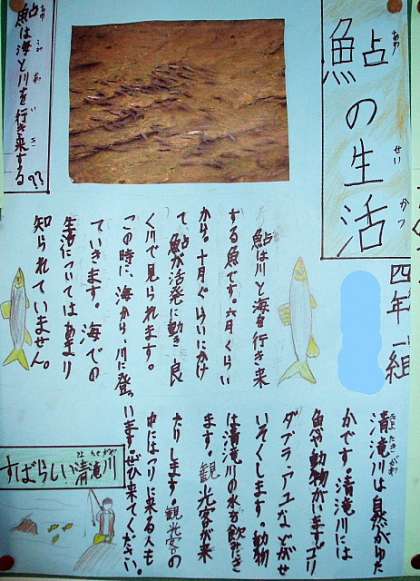 鮎の生活
四年一組
鮎
鮎は海と川を行き来する
鮎は川と海を行き来
する魚です。六月くらい
から。十月ぐらいにかけ
て、鮎が活発に動き良
く川で見られます。
この時に、海から、川に登っ
ていきます。海での
生活についてはあまり
知られていません。
すばらしい清滝川
清滝川は自然がゆた
かです。清滝川には
魚や動物がいます。ゴリ
ダブラ、アユなどがせ
いそくします。動物
は清滝川の水を飲んだり
ます。観光客が来
たりします。観光客の
中にはつりに来る人も
います。ぜひ来てください。